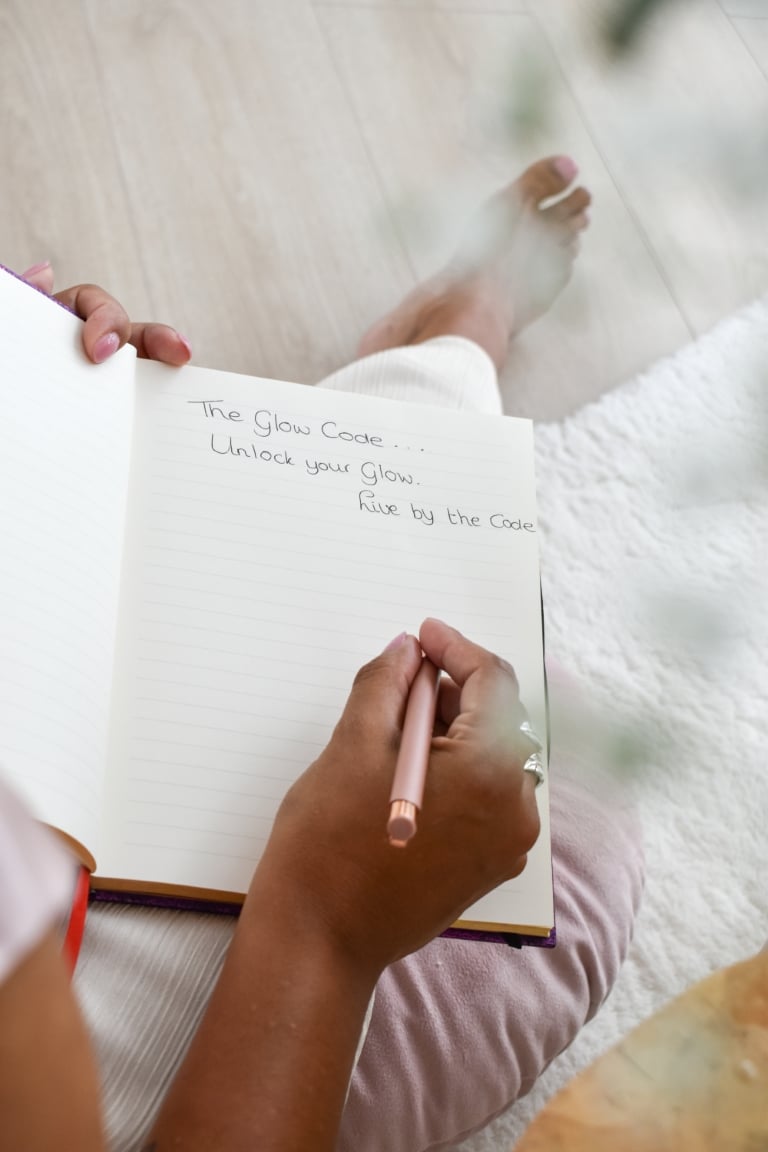 The Glow Code...
Unlock your Glow.
Live by the Code